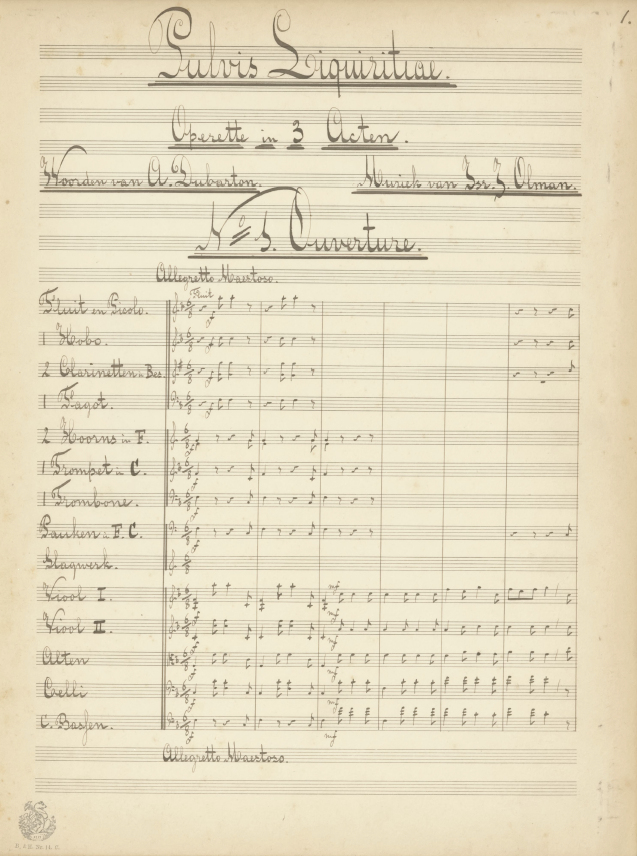 1.
Pulvis Liquiritiae.
Operette in 3 Acten.
Woorden van A. Dubarton. Muziek van Isr. J. Olman.
No 1. Ouverture.
Allegretto Maestoso.
Fluit en Picolo. Fluit
1 Hobo.
2 Clarinetten in Bes.
1 Fagot.
2 Hoorns in F.
1 Trompet in C.
1 Trombone.
Pauken in F. C.
Slagwerk.
Viool I. mf
Viool II. mf
Alten
Celli mf
C. Bassen. mf
Allegretto Maestoso.